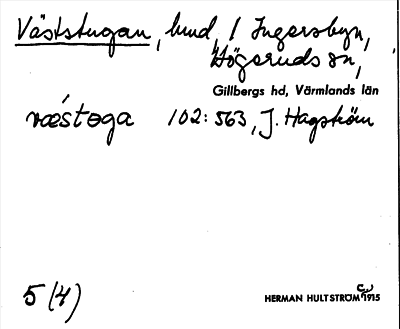 Väststugan, lund, / Ingersbyn,
Högeruds sn,
Gillbergs hd, Värmlands län
væ´stɵga 102:563, J. Hagström
5 (4)
HERMAN HULTSTRÖM 1915